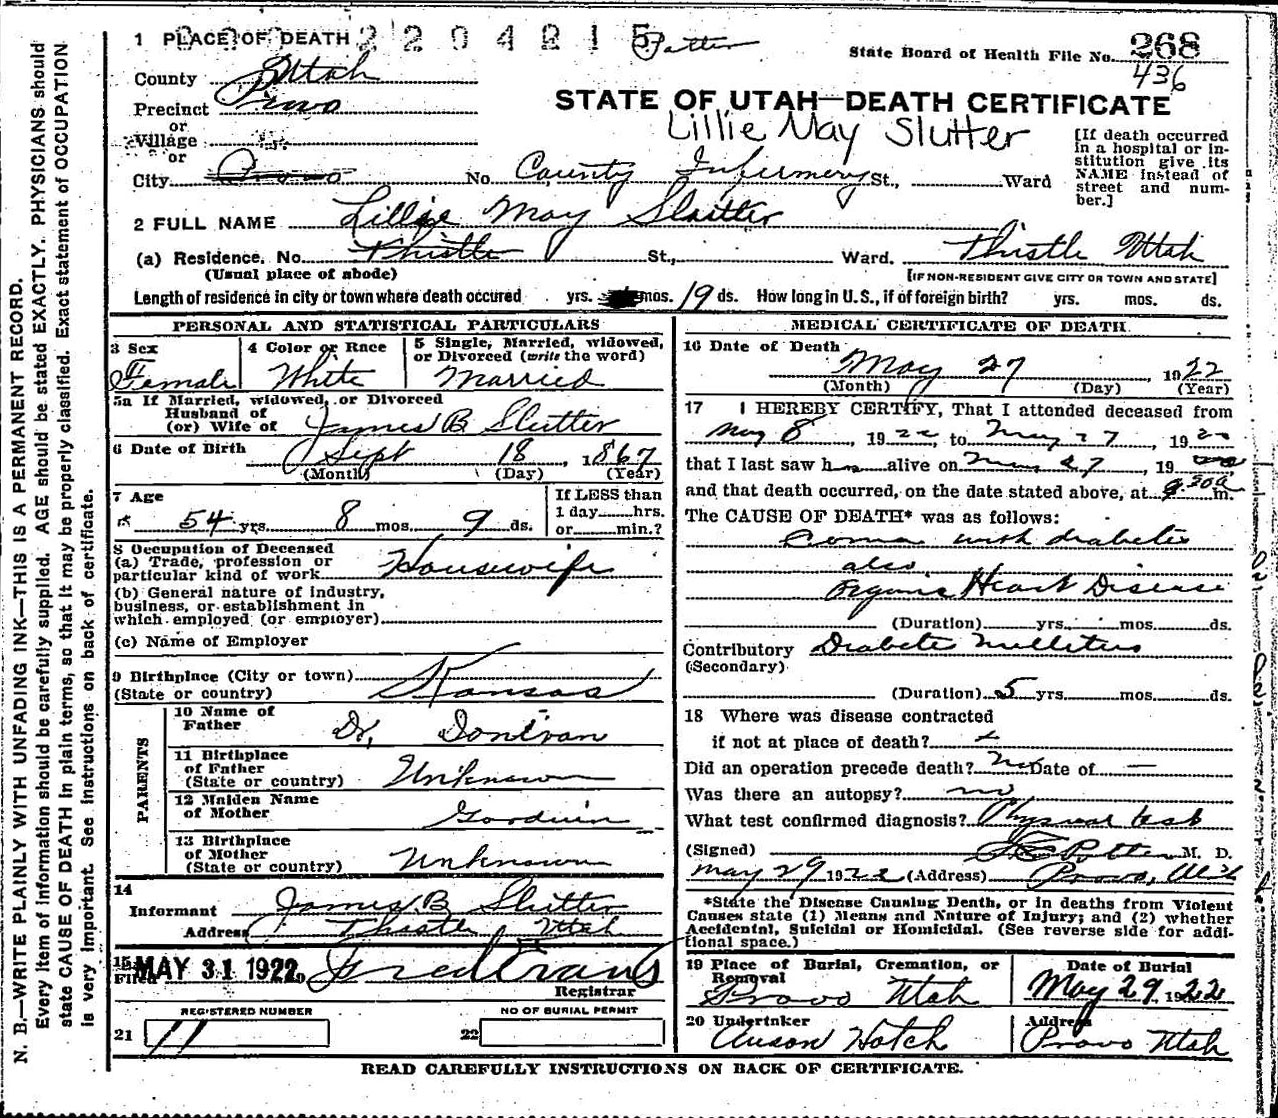 1 PLACE OF DEATH 2 2 0 4 2 1 5
State Board of Health File No. 268
436
County Utah
Precinct Provo
or
Village
or
City Provo No. County Infirmery St., Ward
STATE OF UTAH—DEATH CERTIFICATE
Lillie May Slutter
[If death occurred in a hospital or institution give its NAME instead of street and number.]
2 FULL NAME Lillie May Slutter
(a) Residence. No. Thistle St., Ward. Thistle Utah
(Usual place of abode) [IF NON-RESIDENT GIVE CITY OR TOWN AND STATE]
Length of residence in city or town where death occured yrs. mos. 19 ds. How long in U.S., if of foreign birth? yrs. mos. ds.
PERSONAL AND STATISTICAL PARTICULARS
3 Sex
Female
4 Color or Race
White
5 Single, Married, widowed, or Divorced (write the word)
Married
5a If Married, widowed, or Divorced
Husband of
(or) Wife of James B Slutter
6 Date of Birth Sept 18, 1867
(Month) (Day) (Year)
7 Age
54 yrs. 8 mos. 9 ds.
If LESS than
1 day hrs.
or min.?
8 Occupation of Deceased
(a) Trade, profession or
particular kind of work Housewife
(b) General nature of industry,
business, or establishment in
which employed (or employer)
(c) Name of Employer
9 Birthplace (City or town)
(State or country) Kansas
PARENTS
10 Name of
Father Dr. Donivan
11 Birthplace
of Father
(State or country) Unknown
12 Maiden Name
of Mother Goodwin
13 Birthplace
of Mother
(State or country) Unknown
14
Informant James B Slutter
Address Thistle Utah
15
Filed MAY 31 1922 Fred Evans
Registrar
REGISTERED NUMBER
21 11
NO OF BURIAL PERMIT
22
MEDICAL CERTIFICATE OF DEATH
16 Date of Death
May 27, 1922
(Month) (Day) (Year)
17 I HEREBY CERTIFY, That I attended deceased from
May 8, 1922 to May 27, 1922
that I last saw h alive on May 27, 1922
and that death occurred, on the date stated above, at 9.30a m.
The CAUSE OF DEATH* was as follows:
Coma with diabetis
also
Organic Heart Disease
(Duration) yrs. mos. ds.
Contributory Diabete Mellitus
(Secondary)
(Duration) 5 yrs. mos. ds.
18 Where was disease contracted
if not at place of death?
Did an operation precede death? No Date of —
Was there an autopsy? no
What test confirmed diagnosis? Physical test
(Signed) Potter M. D.
May 29 1922 (Address) Provo, Utah
*State the Disease Causing Death, or in deaths from Violent
Causes state (1) Means and Nature of Injury; and (2) whether
Accidental, Suicidal or Homicidal. (See reverse side for addi-
tional space.)
19 Place of Burial, Cremation, or
Removal
Provo Utah
Date of Burial
May 29, 1922
20 Undertaker
Anson Hatch
Address
Provo Utah
READ CAREFULLY INSTRUCTIONS ON BACK OF CERTIFICATE.
N. B.—WRITE PLAINLY WITH UNFADING INK—THIS IS A PERMANENT RECORD.
Every item of information should be carefully supplied. AGE should be stated EXACTLY. PHYSICIANS should
state CAUSE OF DEATH in plain terms, so that it may be properly classified. Exact statement of OCCUPATION
is very important. See instructions on back of certificate.